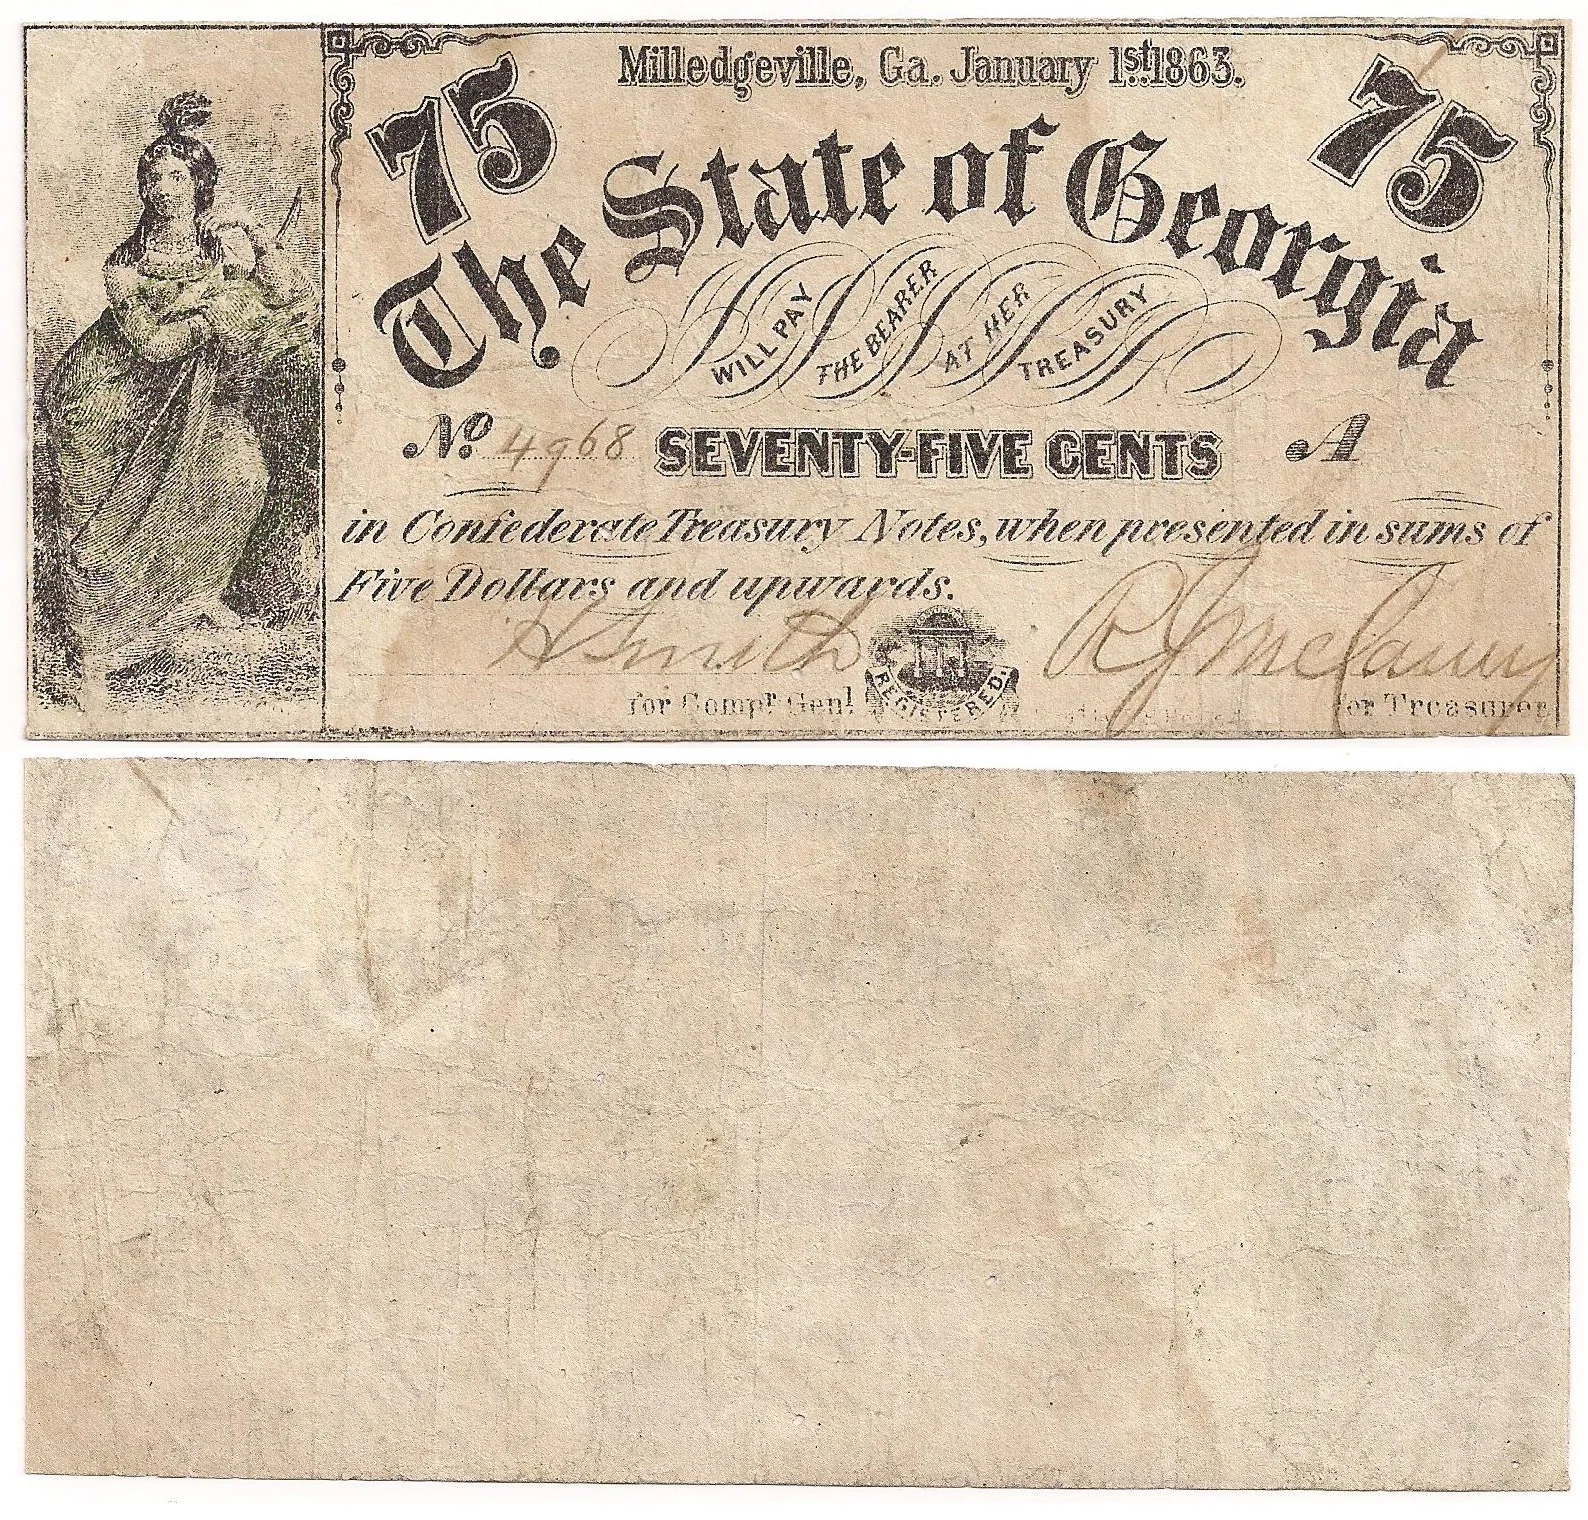 Milledgeville, Ga. January 1st 1863.
75 75
The State of Georgia
WILL PAY THE BEARER AT HER TREASURY
No. 4968 SEVENTY-FIVE CENTS A
in Confederate Treasury Notes, when presented in sums of
Five Dollars and upwards.
H Smith
for Compr Genl REGISTERED. for Treasurer